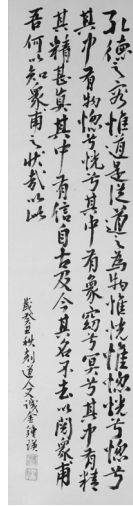 孔德之容惟道是從道之為物惟恍惟惚恍兮惚兮
其中有物惚兮恍兮其中有象窈兮冥兮其中有精
其精甚真其中有信自古及今其名不去以閱眾甫
吾何以知眾甫之狀哉以此
歲癸丑秋